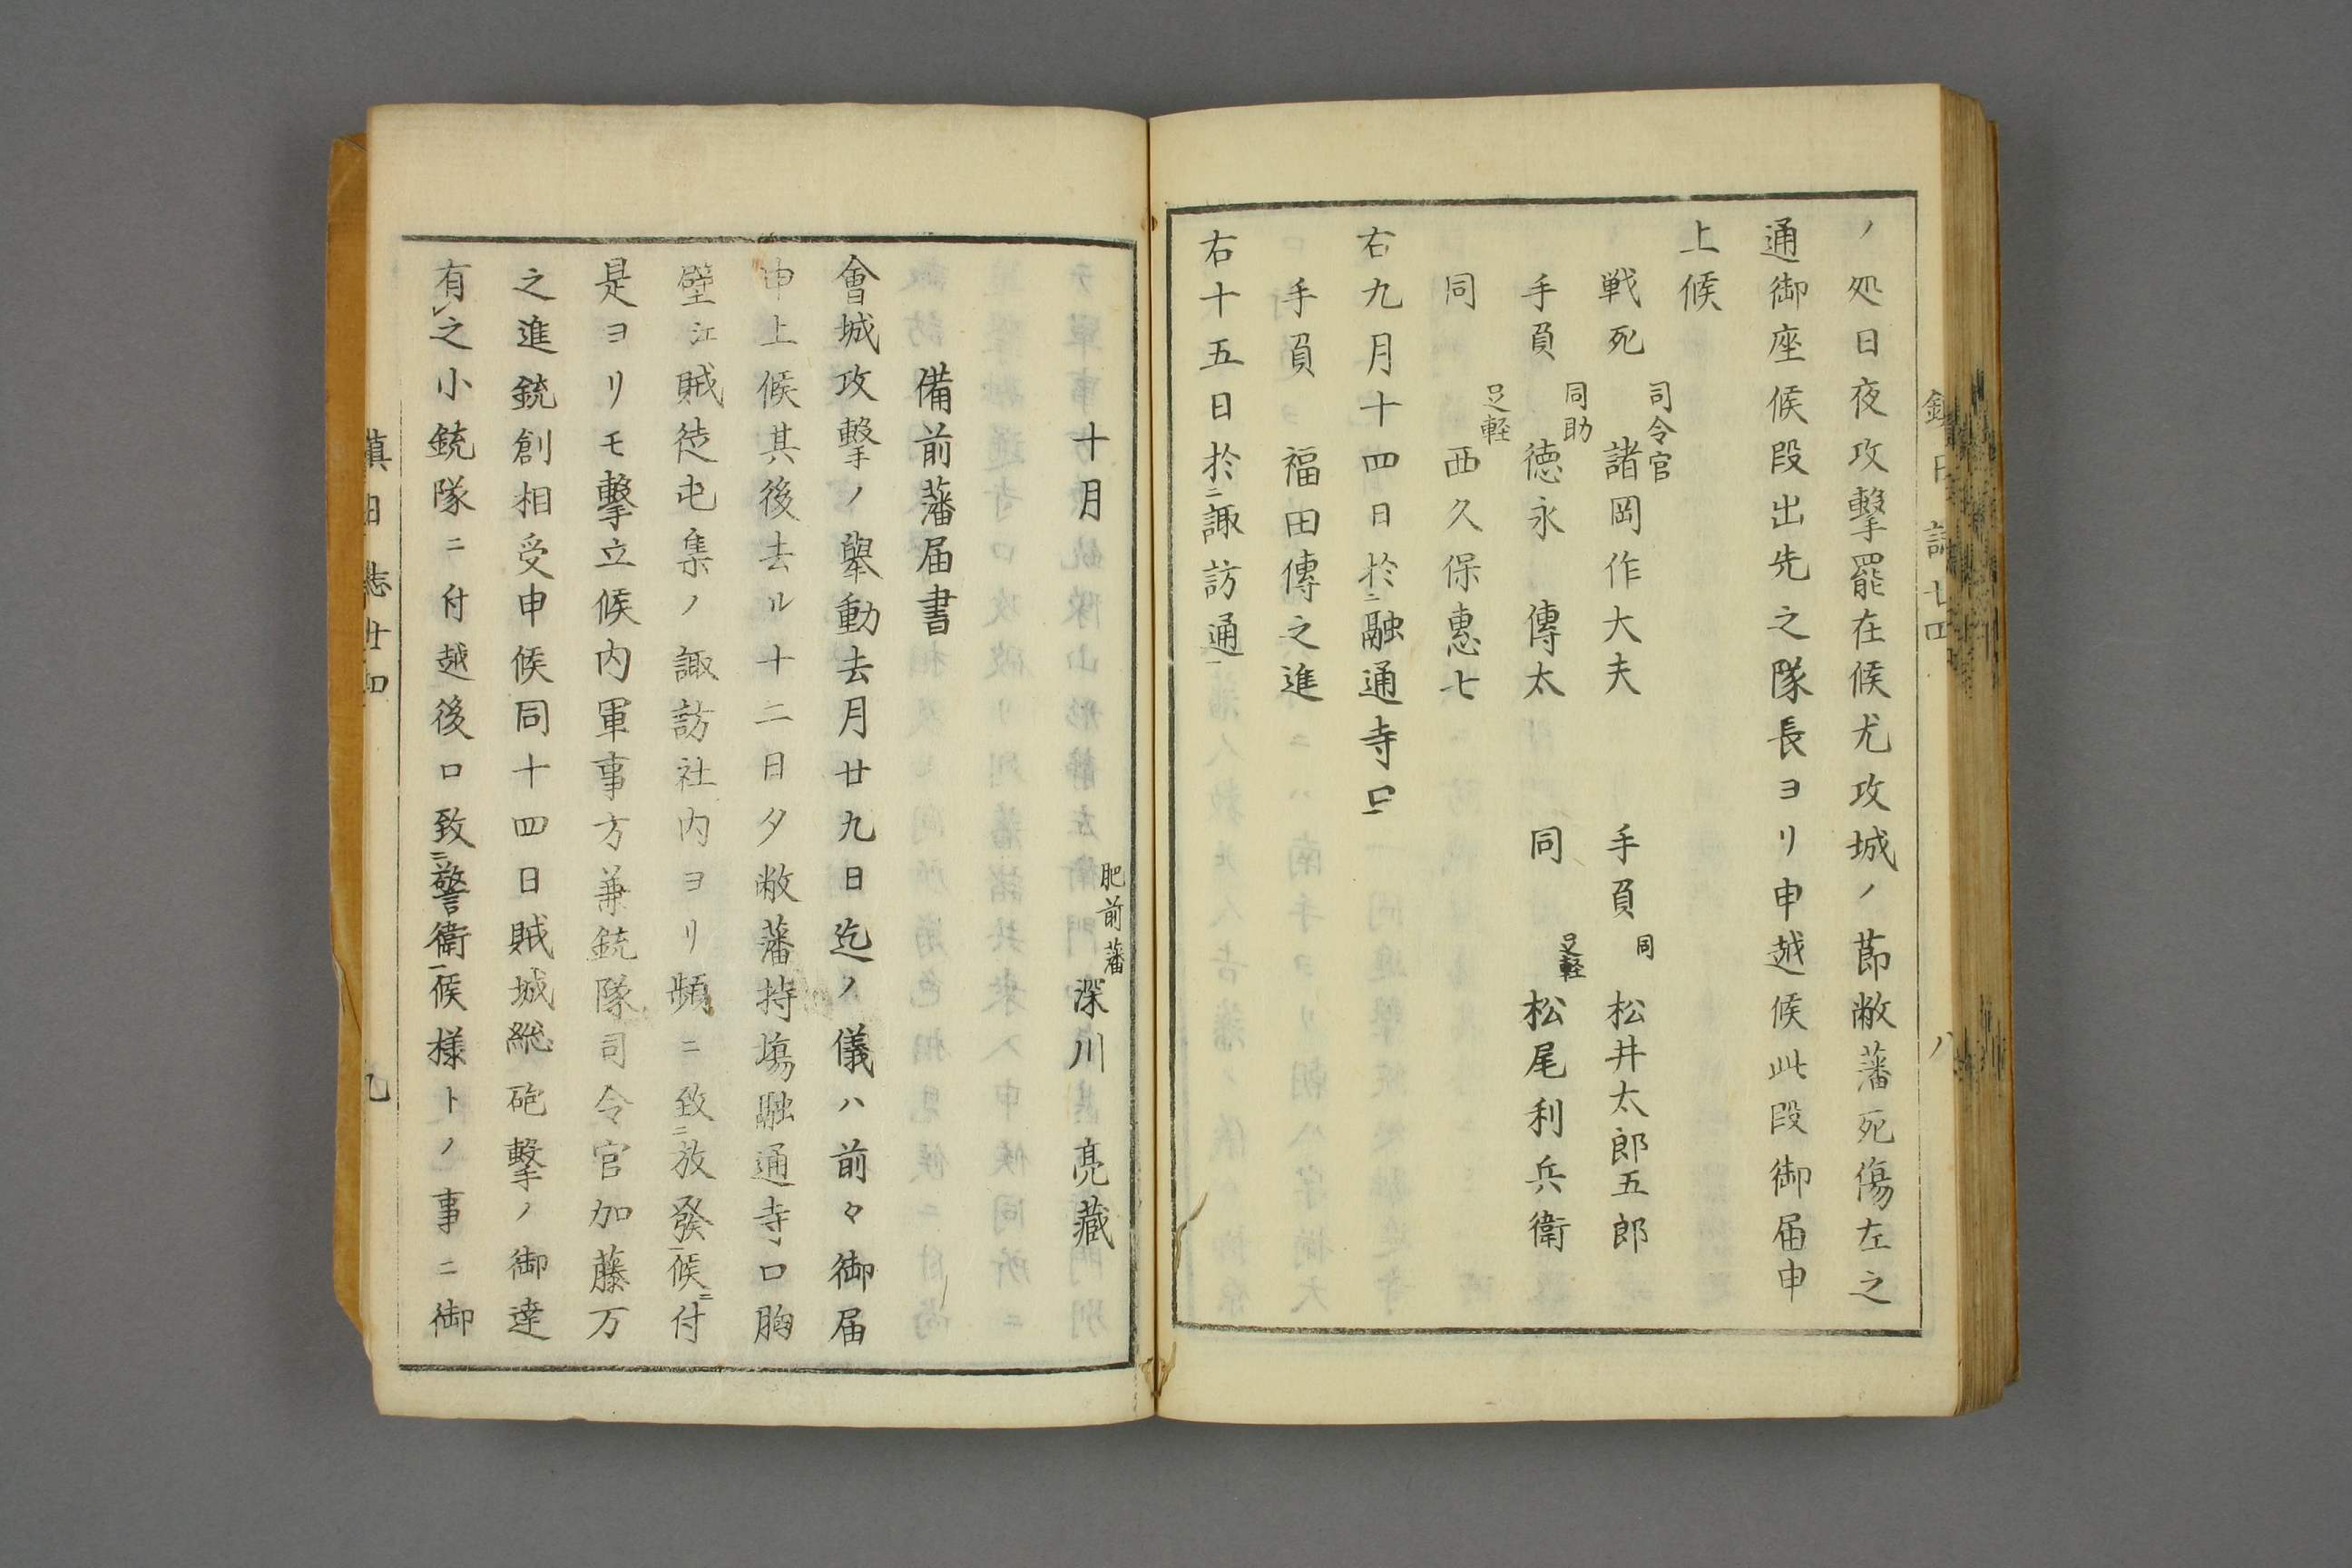 ノ処日夜攻擊罷在候尤攻城ノ節敝藩死傷左之
通御座候段出先之隊長ヨリ申越候此段御届申
上候
戦死 司令官 諸岡作大夫 手負 同 松井太郎五郎
手負 同助 徳永傳太 同 足軽 松尾利兵衛
同 足軽 西久保惠七
右九月十四日於ニ融通寺口一
手負 福田傳之進
右十五日於ニ諏訪通一
十月 肥前藩 深川亮藏
備前藩届書
會城攻擊ノ擧動去月廿九日迄ノ儀ハ前々御届
申上候其後去ル十二日夕敝藩持塲融通寺口胸
壁江賊徒屯集ノ諏訪社内ヨリ頻ニ致ニ放發一候ニ付
是ヨリモ擊立候内軍事方兼銃隊司令官加藤万
之進銃創相受申候同十四日賊城総砲擊ノ御達
有レ之小銃隊ニ付越後口致ニ警衛一候樣トノ事ニ御
鎮日誌廿四 八
鎮日誌廿四 九